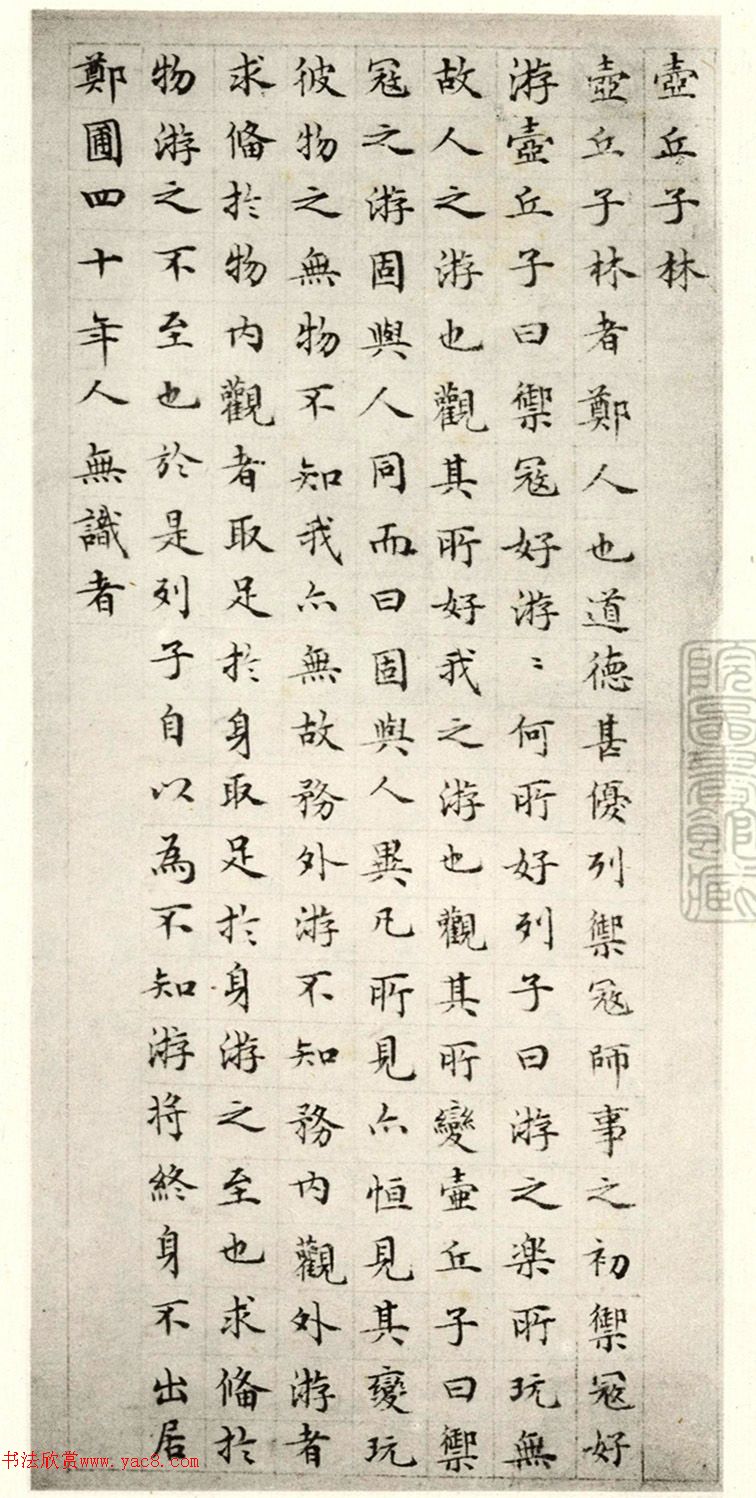 壺丘子林
壺丘子林者鄭人也道德甚優列禦冦師事之初禦冦好
游壺丘子曰禦冦好游〻何所好列子曰游之楽所玩無
故人之游也觀其所好我之游也觀其所變壷丘子曰禦
冦之游固與人同而曰固與人異凡所見亦恒見其變玩
彼物之無物不知我亦無故務外游不知務内觀外游者
求俻扵物内觀者取足扵身取足扵身游之至也求俻扵
物游之不至也於是列子自以為不知游将終身不出居
鄭圃四十年人無識者
书法欣赏www.yac8.com